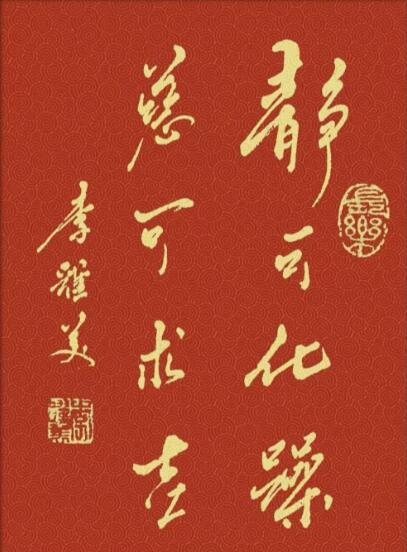 静可化躁
慈可求吉
長樂
李雅美